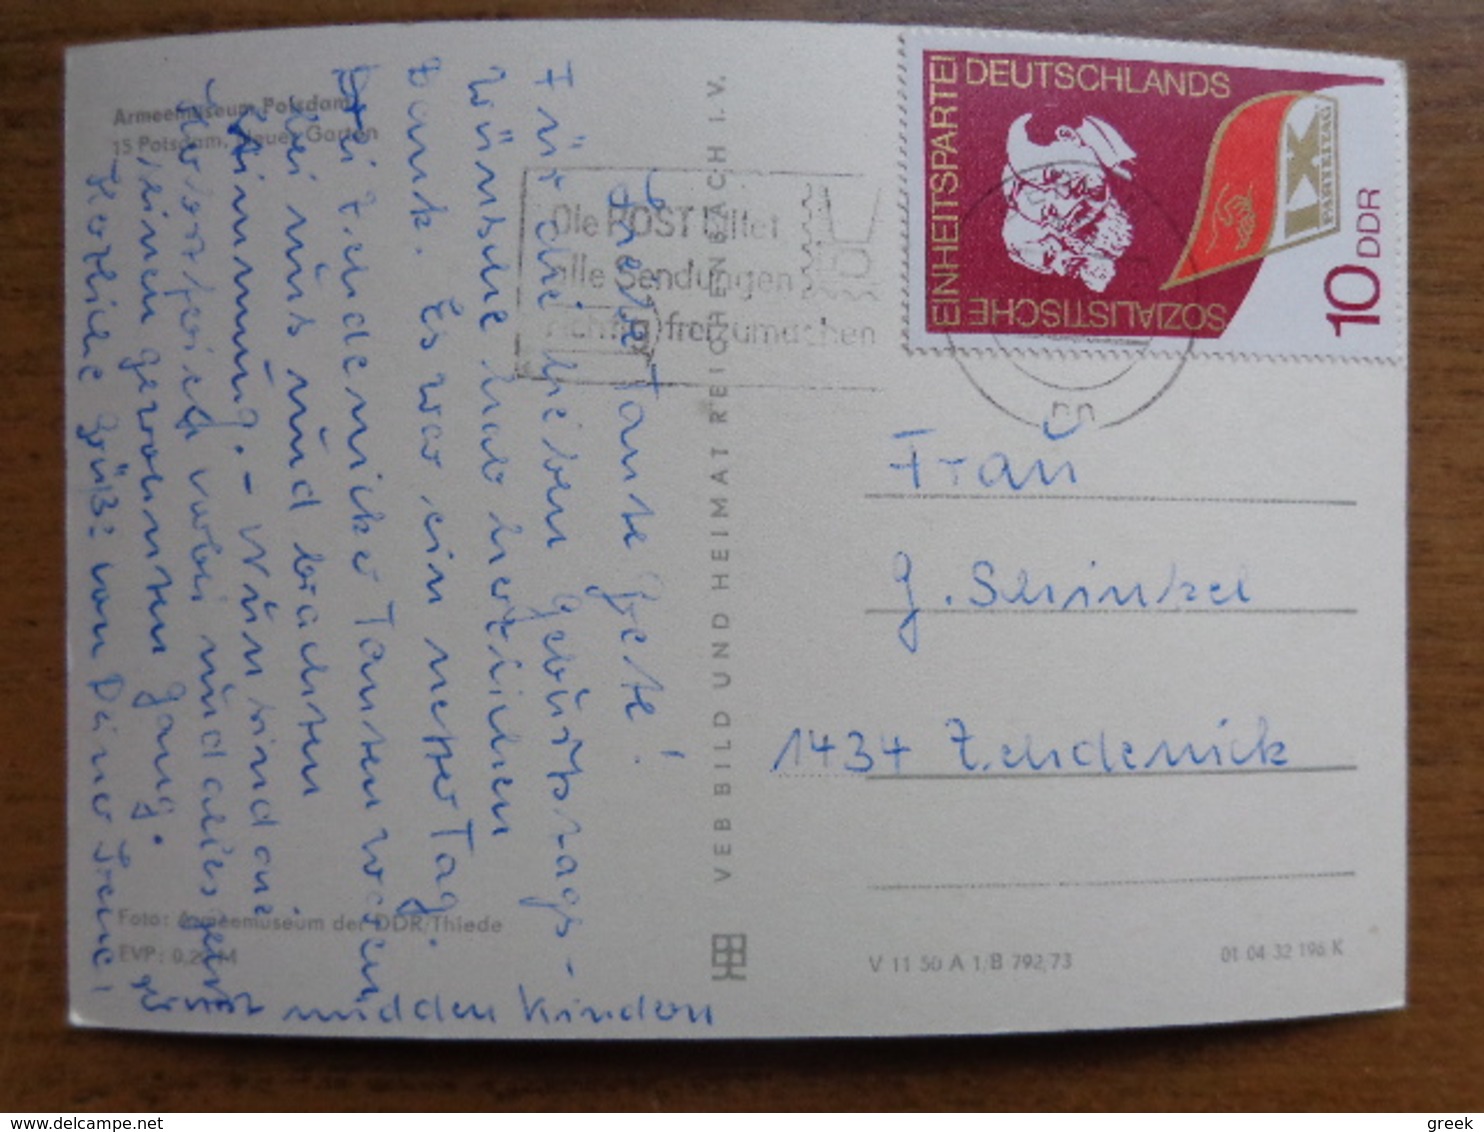 Armeemuseum Potsdam
15 Potsdam, Neuer Garten
Liebe Tante Grete!
Für die lieben Geburtstags-
wünsche hab herzlichen
Dank. Es war ein netter Tag.
Zehdenicker Tanten waren
bei uns und brachten
Stimmung. - Nun sind die
vorbei und alles geht
seinen gewohnten Gang.
Herzliche Grüße von Deiner Irene,
mid den Kindern
Foto: Armeemuseum der DDR/Thiede
EVP: 0,20 M
VEB BILD UND HEIMAT REICHENBACH I. V.
Die POST bittet
alle Sendungen
richtig freizumachen
SOZIALISTISCHE
EINHEITSPARTEI
DEUTSCHLANDS
IX.
PARTEITAG
10 DDR
Frau
G. Schinkel
1434 Zehdenick
V 11 50 A 1/B 792/73
01 04 32 196 K
greek